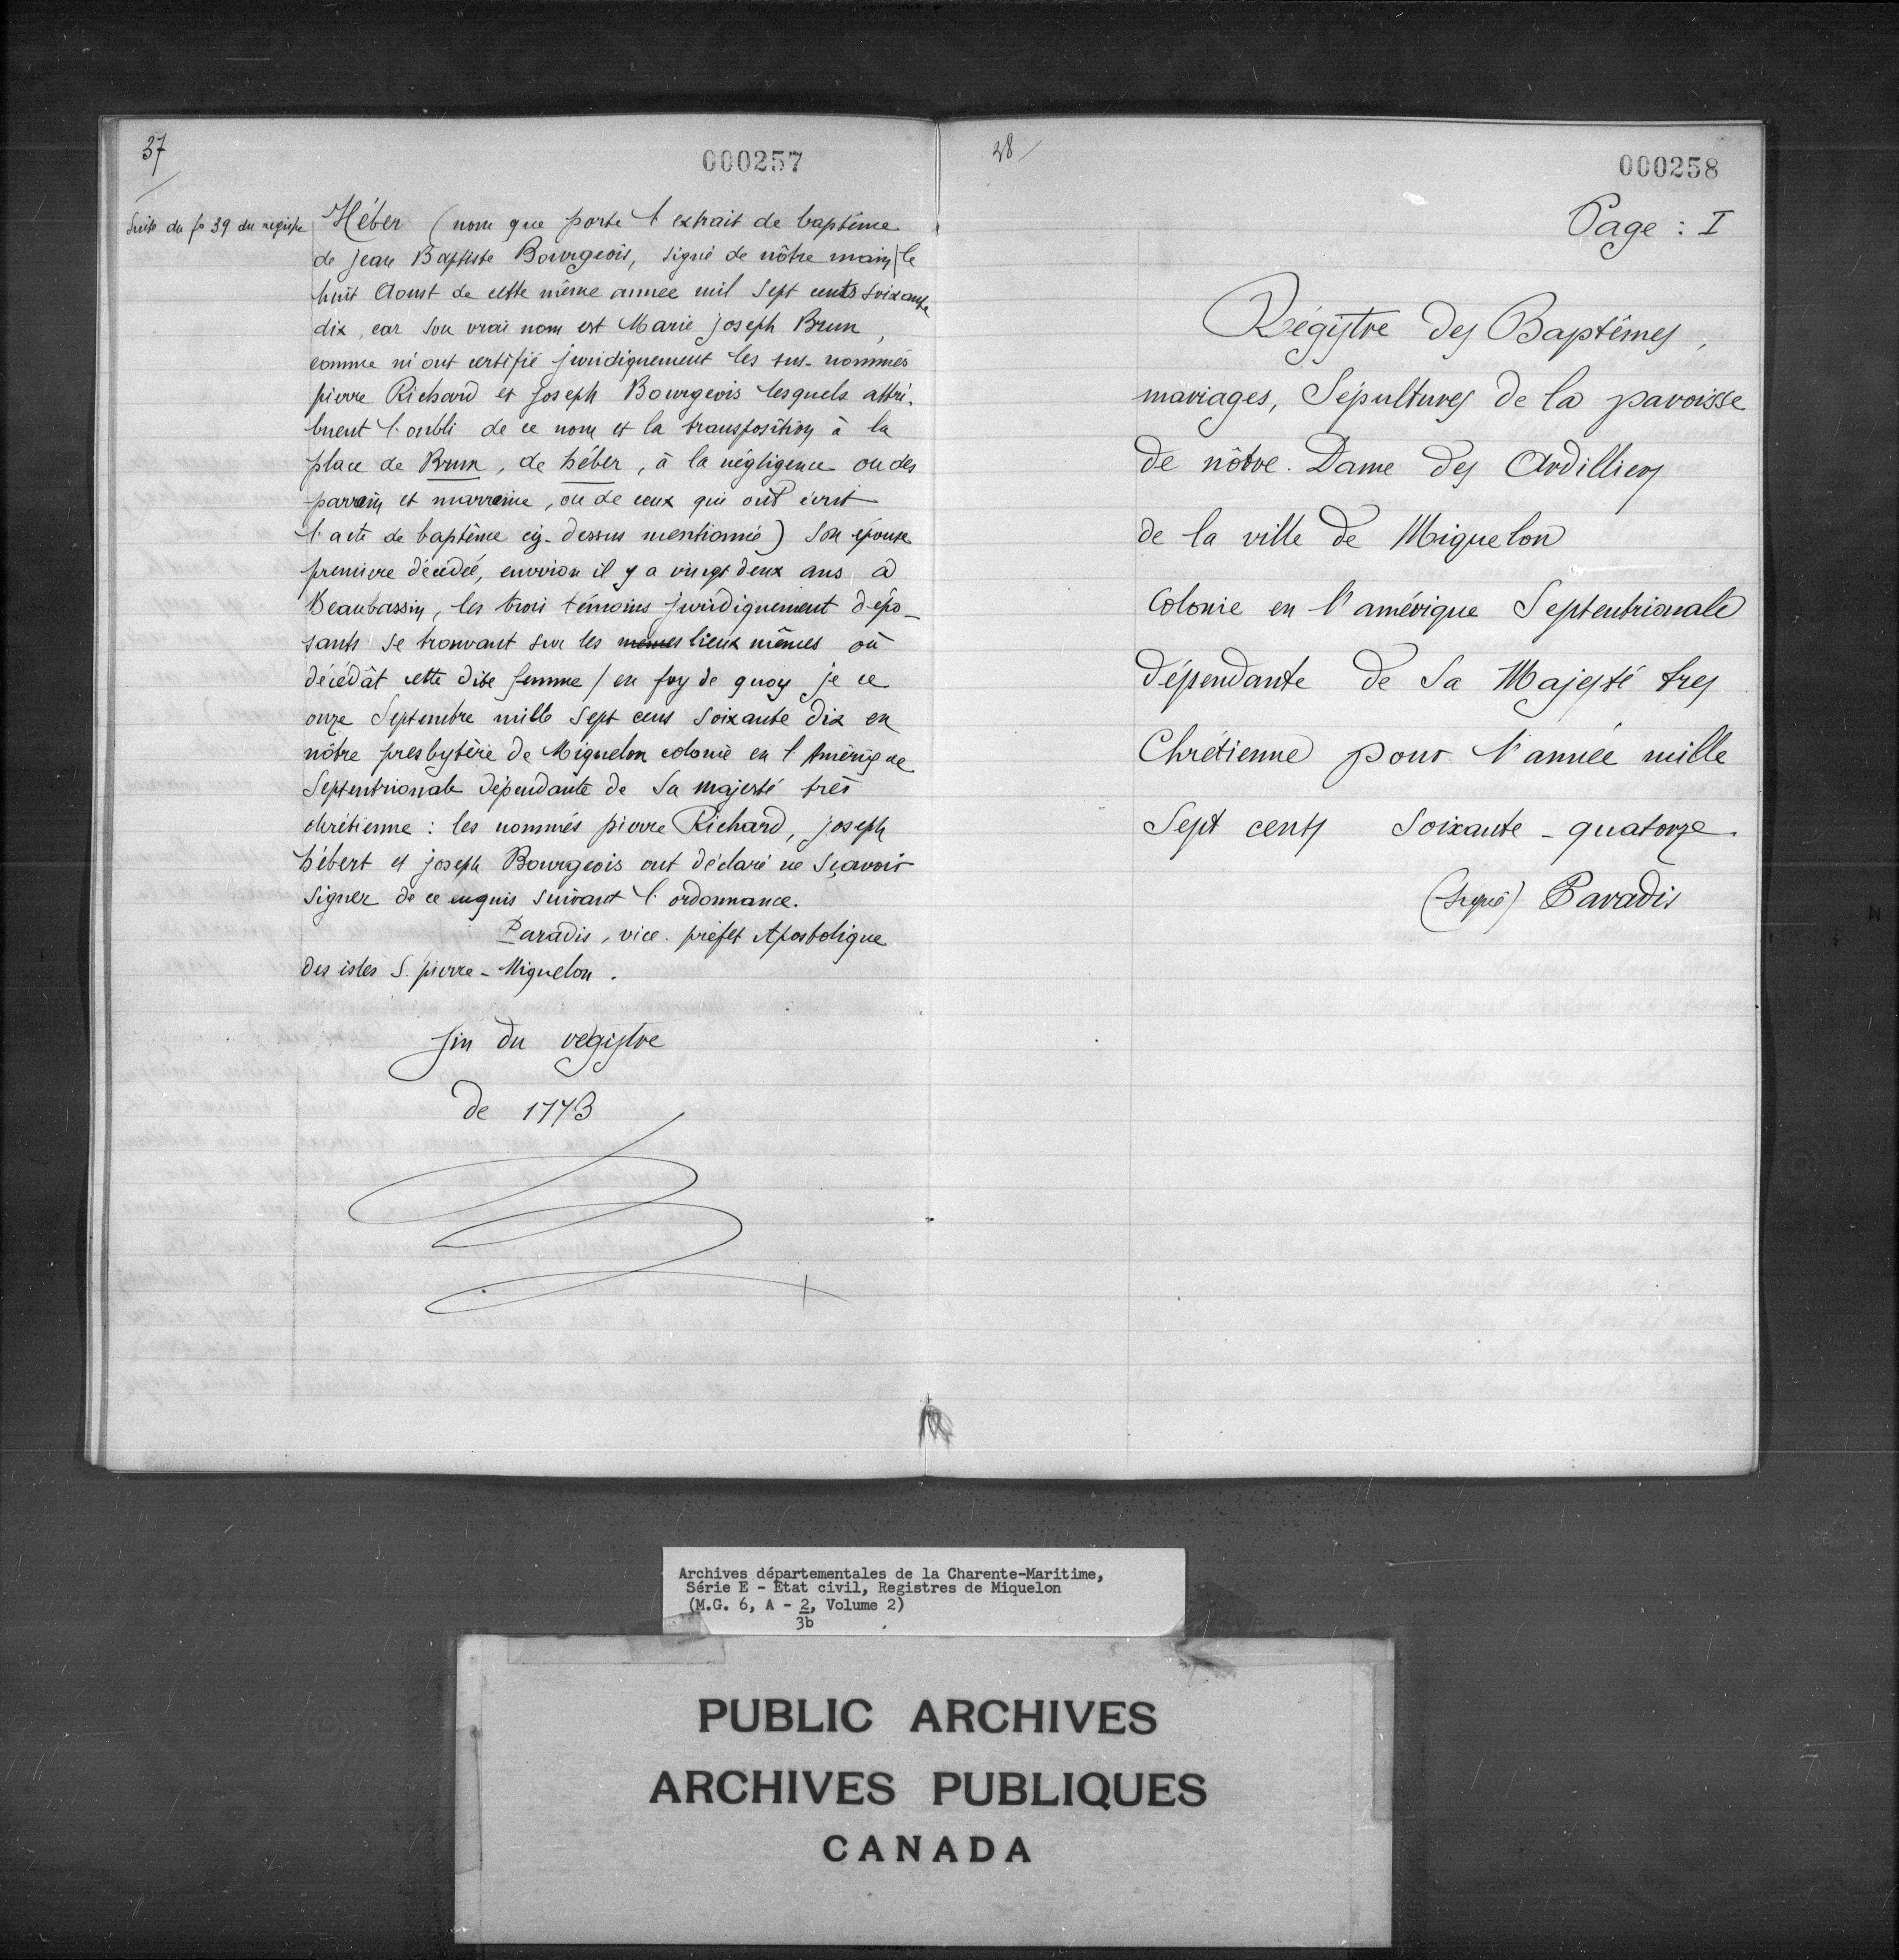 37
000257
Suite du fo 39 du registre
Héber (nom que porte l'extrait de baptême
de jean Baptiste Bourgeois, signé de nôtre main) le
huit Aoust de cette même année mil sept cents soixante
dix, car son vrai nom est Marie joseph Brun,
comme m'ont certifié juridiquement les sus-nommés
pierre Richard et joseph Bourgeois lesquels attri-
buent l'oubli de ce nom et la transposition à la
place de Brun, de héber, à la négligence ou des
parrain et marraine, ou de ceux qui ont écrit
l'acte de baptême cy-dessus mentionné) son épouse
premiere décédée, environ il y a vingt deux ans, à
Beaubassin, les trois témoins juridiquement dépo-
sants se trouvant sur les mêmes lieux mêmes où
décédât cette dite femme / en foy de quoy je ce
onze Septembre mille sept cens soixante dix en
nôtre presbytère de Miquelon colonie en l'Amérique
Septentrionale dépendante de Sa majesté très
chrétienne : les nommés pierre Richard, joseph
hébert et joseph Bourgeois ont déclaré ne sçavoir
signer de ce enquis suivant l'ordonnance.
Paradis, vice-préfet Apostolique
des isles S. pierre-Miquelon.
fin du régistre
de 1773
38
000258
Page : I
Régistre des Baptêmes,
mariages, Sépultures de la paroisse
de nôtre-Dame des Ardilliers
de la ville de Miquelon
Colonie en l'amérique Septentrionale
dépendante de Sa Majesté tres
Chrétienne pour l'année mille
Sept cents Soixante-quatorze.
(signé) Paradis
Archives départementales de la Charente-Maritime,
Série E - Etat civil, Registres de Miquelon
(M.G. 6, A - 2, Volume 2)
3b
PUBLIC ARCHIVES
ARCHIVES PUBLIQUES
CANADA